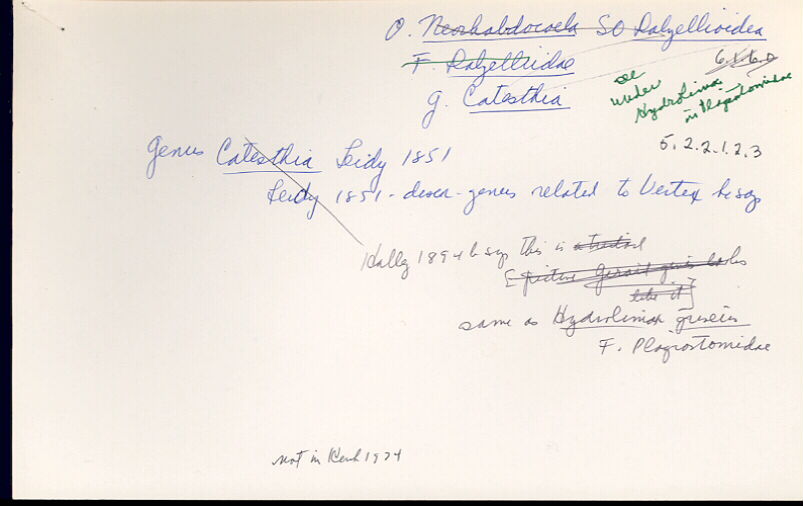 O. Neorhabdocoela SO Dalyellioidea
F. Dalyelliidae
g. Catesthia
6.1.6.0
see
under
Hydrolimax
in Plagiostomidae
5.2.2.1.2.3
Genus Catesthia Leidy 1851
Leidy 1851 - descr - genus related to Vortex he says
1894 he says this is
[ picture Girard gives looks
like it ]
same as Hydrolimax griseus
F. Plagiostomidae
not in Kenk 1974